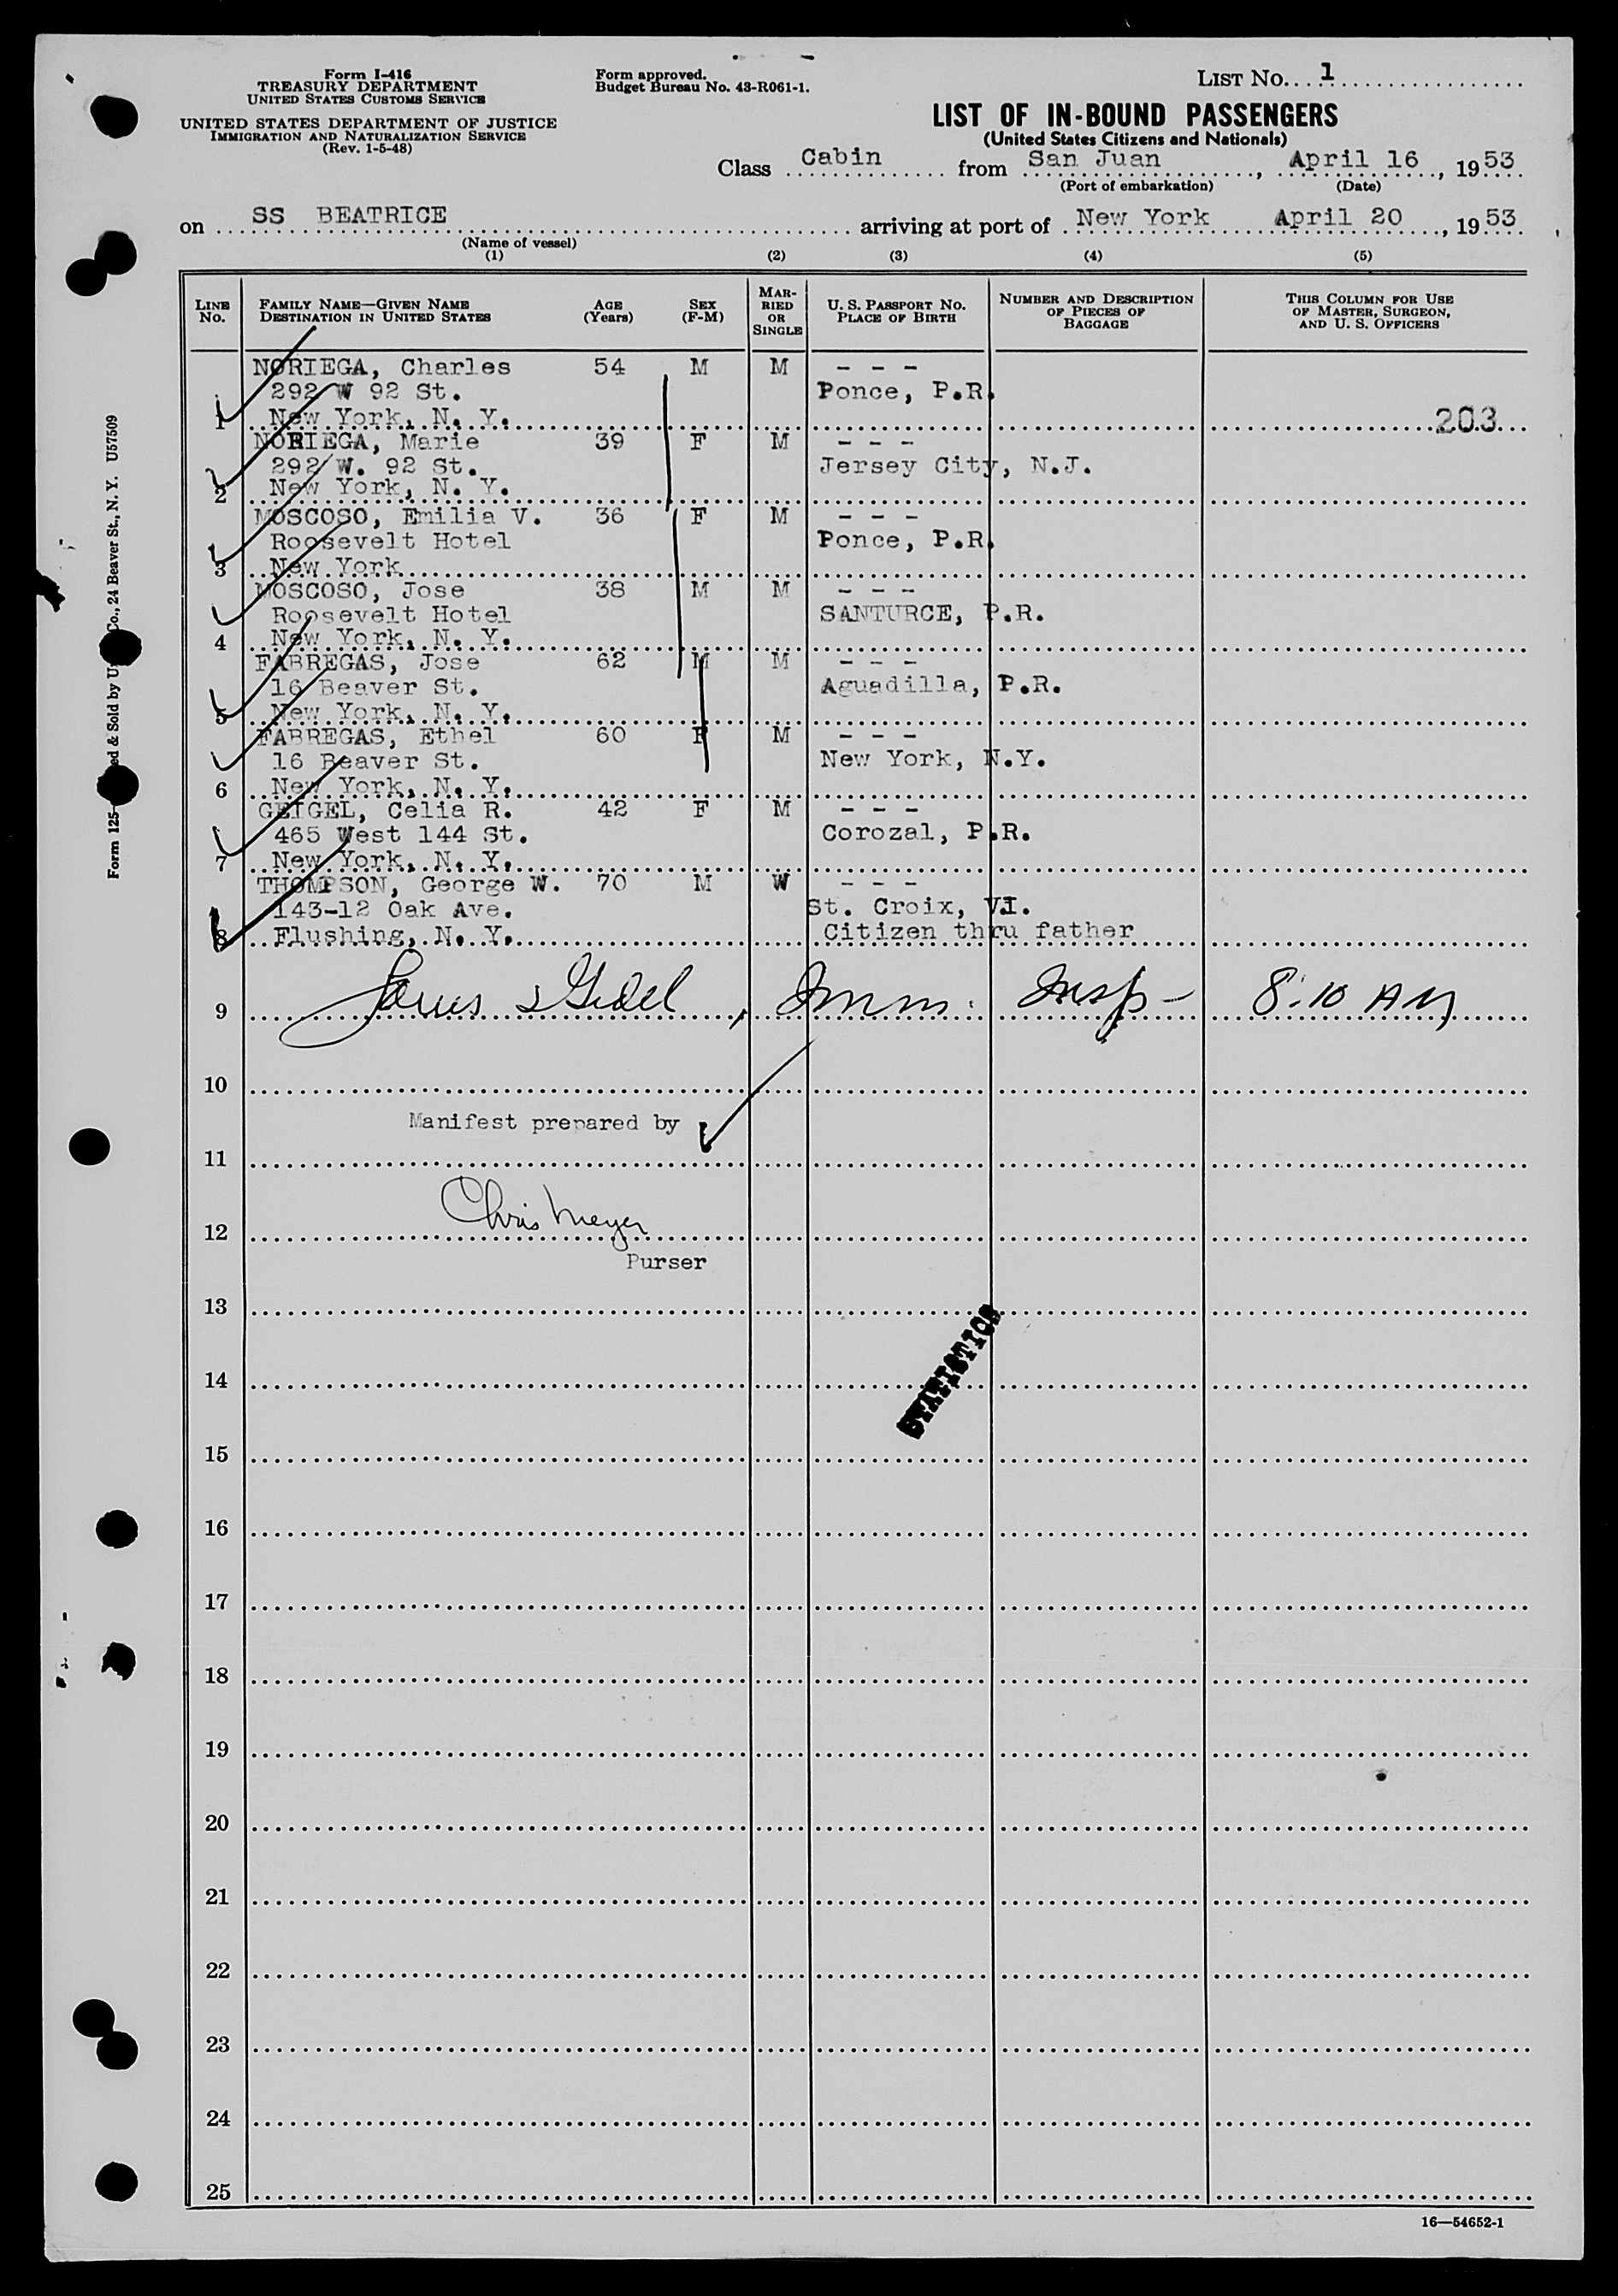 Form I-416
TREASURY DEPARTMENT
UNITED STATES CUSTOMS SERVICE
UNITED STATES DEPARTMENT OF JUSTICE
IMMIGRATION AND NATURALIZATION SERVICE
(Rev. 1-5-48)
Form approved.
Budget Bureau No. 43-R061-1.
LIST NO. 1
LIST OF IN-BOUND PASSENGERS
(United States Citizens and Nationals)
Class Cabin from San Juan, April 16, 1953
(Port of embarkation) (Date)
on SS BEATRICE arriving at port of New York April 20, 1953
(Name of vessel)
(1) (2) (3) (4) (5)
LINE No. FAMILY NAME—GIVEN NAME DESTINATION IN UNITED STATES AGE (Years) SEX (F-M) MARRIED OR SINGLE U. S. PASSPORT NO. PLACE OF BIRTH NUMBER AND DESCRIPTION OF PIECES OF BAGGAGE THIS COLUMN FOR USE OF MASTER, SURGEON, AND U. S. OFFICERS
NORIEGA, Charles 54 M M - - -
292 W 92 St. Ponce, P.R.
1 New York, N. Y. 203
NORIEGA, Marie 39 F M - - -
292 W. 92 St. Jersey City, N.J.
2 New York, N. Y.
MOSCOSO, Emilia V. 36 F M - - -
Roosevelt Hotel Ponce, P.R.
3 New York
MOSCOSO, Jose 38 M M - - -
Roosevelt Hotel SANTURCE, P.R.
4 New York, N. Y.
FABREGAS, Jose 62 M M - - -
16 Beaver St. Aguadilla, P.R.
5 New York, N. Y.
FABREGAS, Ethel 60 F M - - -
16 Beaver St. New York, N.Y.
6 New York, N. Y.
GEIGEL, Celia R. 42 F M - - -
465 West 144 St. Corozal, P.R.
7 New York, N. Y.
THOMPSON, George W. 70 M W - - -
143-12 Oak Ave. St. Croix, V.I.
8 Flushing, N. Y. Citizen thru father
9 Imm. Insp- 8:10 AM
10
Manifest prepared by
11
12 Chris Meyer
Purser
13
STATISTICS
14
15
16
17
18
19
20
21
22
23
24
25
16—54652-1
Form 125- ed & Sold by Co., 24 Beaver St., N. Y. U57509